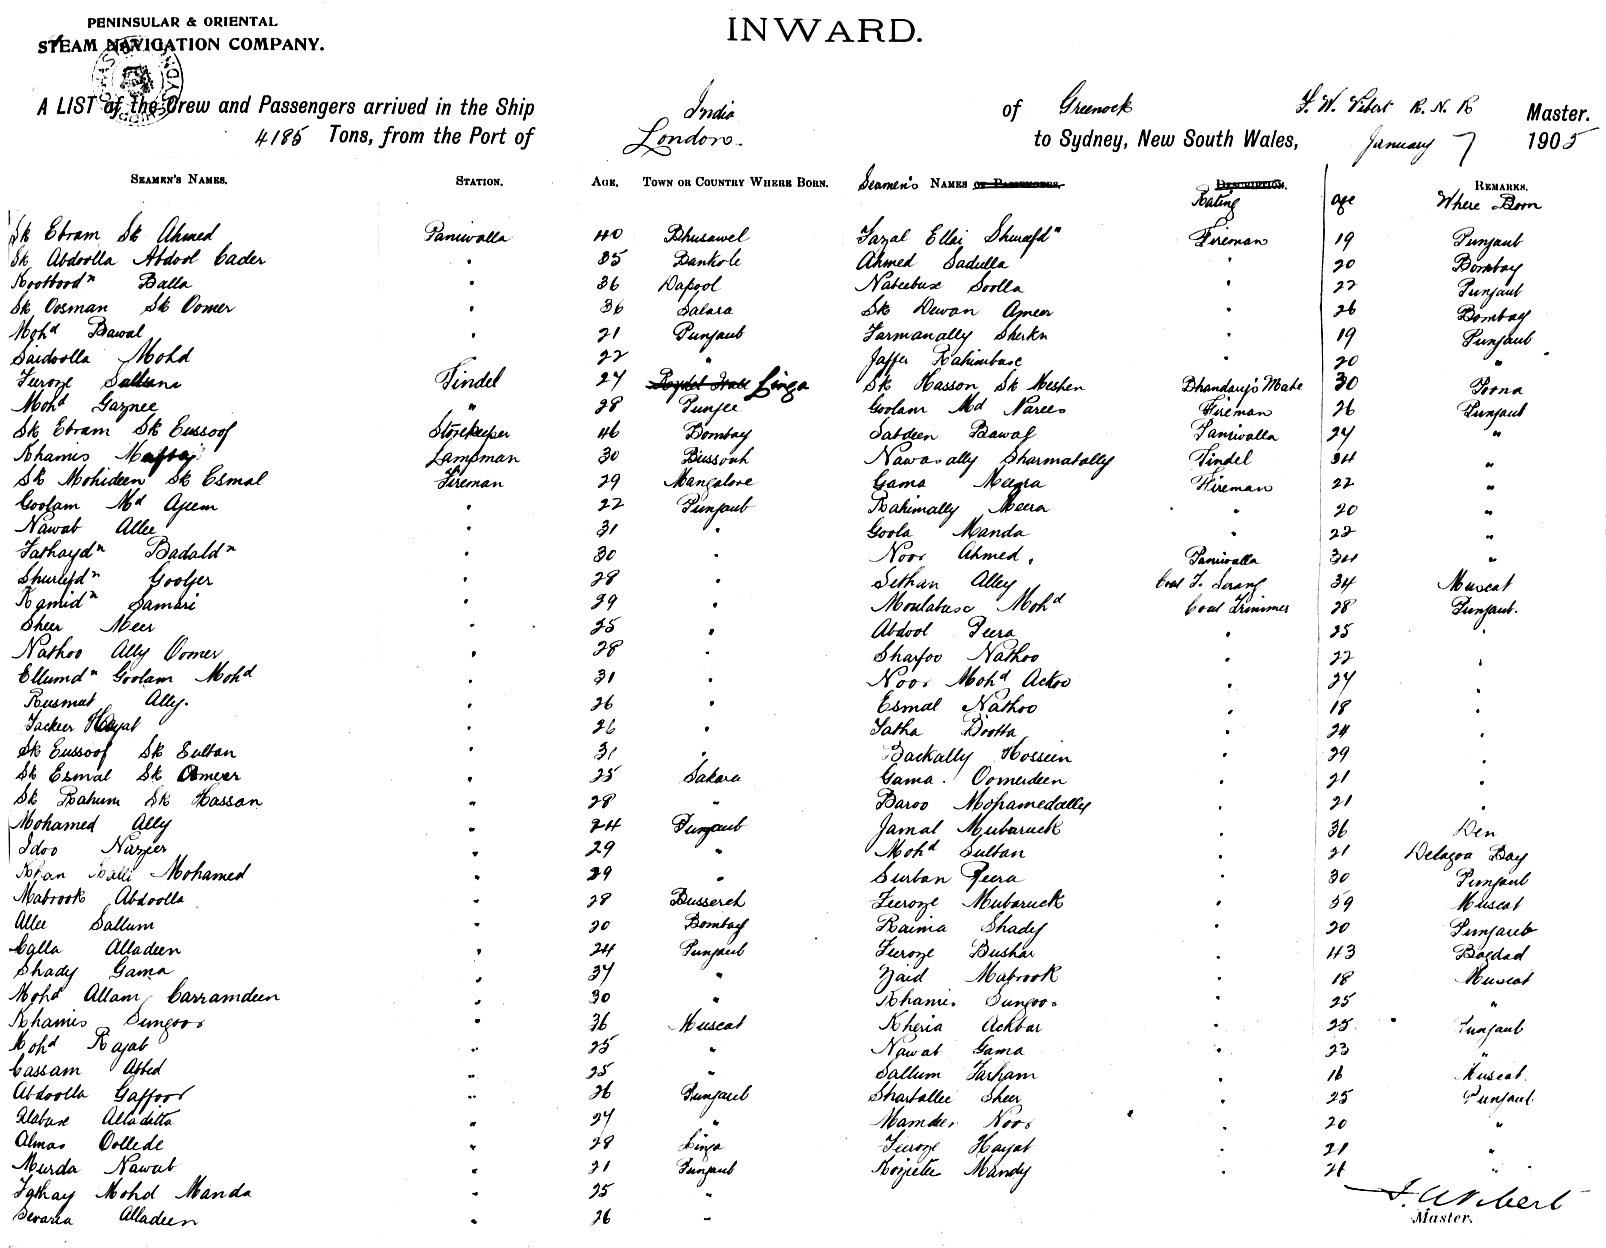 PENINSULAR & ORIENTAL
STEAM NAVIGATION COMPANY.
INWARD.
A LIST of the Crew and Passengers arrived in the Ship India of Greenock Master.
4185 Tons, from the Port of London. to Sydney, New South Wales, January 7 1905
SEAMEN'S NAMES. STATION. AGE. TOWN OR COUNTRY WHERE BORN.
Sk Ebram Sk Ahmed Paniwalla 40 Bhusawel
Sk Abdoolla Abdool Cader " 35 Bankole
Balla " 36 Dapool
Sk Oosman Sk Oomer " 36 Salara
Mohd Bawal " 21 Punjaub
Saidoolla Mohd " 22 "
Feroze Tindel 27 Linga
Mohd Gaznee " 28 Punjee
Sk Ebram Sk Eussoof Storekeeper 46 Bombay
Khamis Lampman 30 Bussorah
Sk Mohideen Sk Esmal Fireman 29 Mangalore
Goolam Md Ajeem " 22 Punjaub
Nawab Allee " 31 "
Fathaydn Badaldn " 30 "
Shurufdn Gooljer " 28 "
Hamidn Samdri " 29 "
Sheer Meer " 25 "
Nathoo Ally Oomer " 28 "
Ellumdn Goolam Mohd " 31 "
Rusmat Ally. " 26 "
Fackeer Hayat " 26 "
Sk Eussoof Sk Sultan " 31 "
Sk Esmal Sk Omeer " 25 Sakara
Sk Rahum Sk Hassan " 28 "
Mohamed Ally " 24 Punjaub
Idoo Nazeer " 29 "
Khan Mohamed " 29 "
Mabrook Abdoolla " 28 Bussereh
Allee Sallum " 20 Bombay
Calla Alladeen " 24 Punjaub
Shady Gama " 37 "
Mohd Allam Carramdeen " 30 "
Khamis Sungoor " 36 Muscat
Mohd Rajab " 25 "
Cassam Abbed " 25 "
Abdoolla Gaffoor " 26 Punjaub
Alabuxe Alladitta " 27 "
Almas Dollede " 28 Linga
Murda Nawab " 21 Punjaub
Fathay Mohd Manda " 25 "
Sevaria Alladeen " 26 "
Seamen's NAMES OR PASSENGERS. DESCRIPTION. Rating Age REMARKS. Where Born
Fazal Ellai Shurufdn Fireman 19 Punjaub
Ahmed Sadulla " 20 Bombay
Nabeebux Soolla " 22 Punjaub
Sk Dewan Ameer " 26 Bombay
Farmanally Sherkn " 19 Punjaub
Jaffer Rahimbuxe " 20 "
Sk Hasson Sk Meshen Bhandary's Mate 30 Poona
Goolam Md Narees Fireman 26 Punjaub
Sabdeen Bawal Paniwalla 27 "
Nawasally Sharmatally Tindel 34 "
Gama Meera Fireman 22 "
Rahimally Meera " 20 "
Goola Manda " 22 "
Noor Ahmed. Paniwalla 34 "
Sethan Alley Coal T. Serang 34 Muscat
Moulabuxe Mohd Coal Trimmer 28 Punjaub.
Abdool Peera " 25 "
Sharfoo Nathoo " 22 "
Noor Mohd Ackoo " 27 "
Esmal Nathoo " 18 "
Fatha Bootta " 24 "
Backally Hossein " 29 "
Gama. Oomerdeen " 21 "
Baroo Mohamedally " 21 "
Jamal Mubaruck " 36 Den
Mohd Sultan " 21 Delagoa Bay
Surban Peera " 30 Punjaub
Feroze Mubaruck " 39 Muscat
Raima Shady " 20 Punjaub
Feroze Bushar " 43 Bagdad
Zaid Mabrook " 18 Muscat
Khamis Sungoor " 25 "
Kheria Ackbar " 25 Punjaub
Nawab Gama " 23 "
Sallum Farham " 16 Muscat.
Sharballee Sheer " 25 Punjaub.
Mamdeer Noor " 20 "
Feroze Hayat " 21 "
Mandy " 26 "
Master.